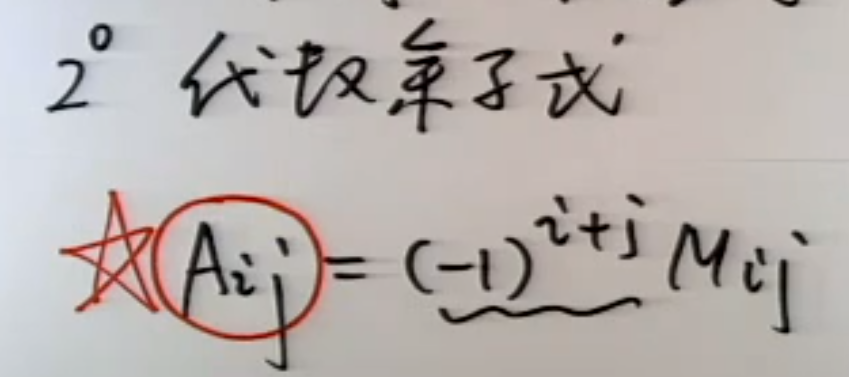 2° 代数余子式
☆ Aij = (-1)^{i+j} Mij